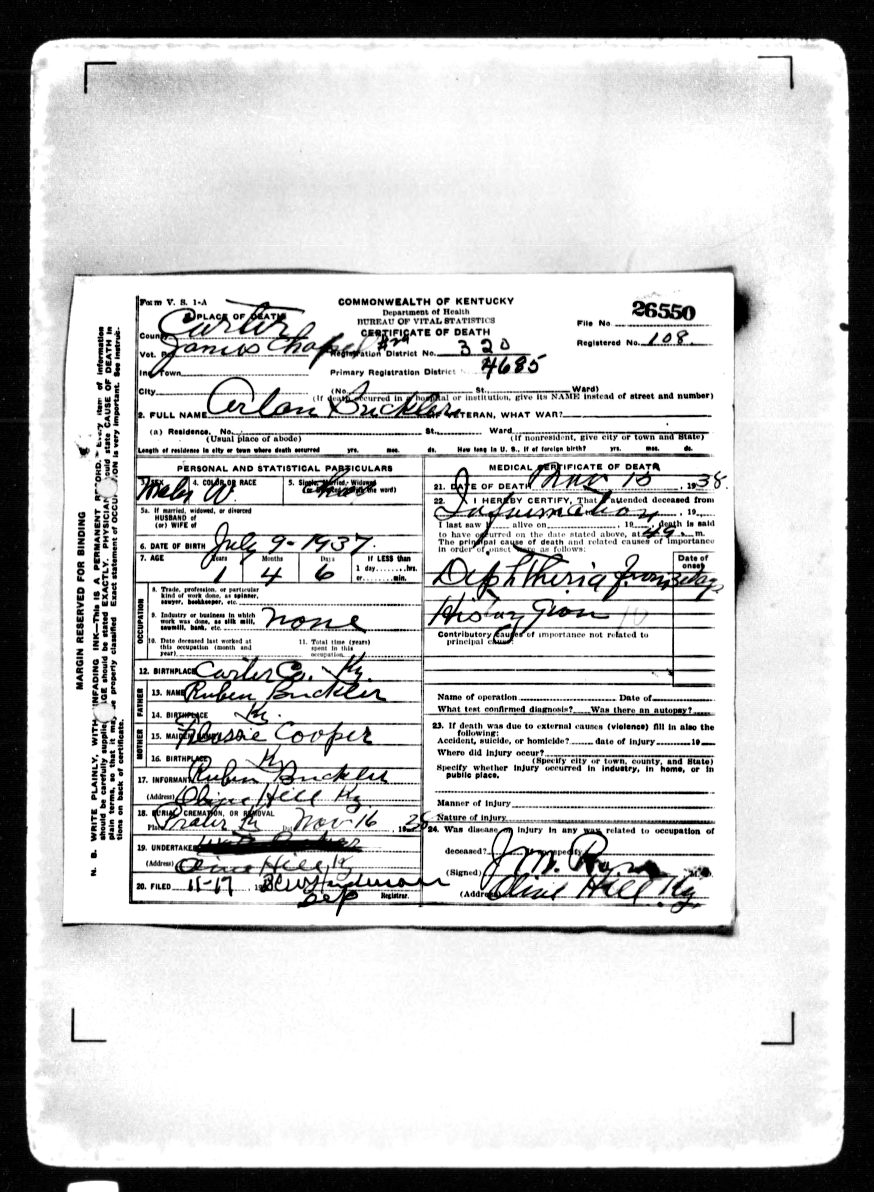 Form V. S. 1-A
COMMONWEALTH OF KENTUCKY
Department of Health
BUREAU OF VITAL STATISTICS
CERTIFICATE OF DEATH
File No. 26550
Registered No. 108.
1. PLACE OF DEATH
County Carter
Vot. Pct. James Chapel #29
Registration District No. 320
Inc. Town
Primary Registration District No. 4685
City (No. St. Ward)
(If death occurred in a hospital or institution, give its NAME instead of street and number)
2. FULL NAME Arlan Buckler IF VETERAN, WHAT WAR?
(a) Residence. No. St., Ward
(Usual place of abode) (If nonresident, give city or town and State)
Length of residence in city or town where death occurred yrs. mos. ds. How long in U. S., if of foreign birth? yrs. mos. ds.
PERSONAL AND STATISTICAL PARTICULARS
3. SEX 4. COLOR OR RACE 5. Single, Married, Widowed
Male W
5a. If married, widowed, or divorced
HUSBAND of
(or) WIFE of
6. DATE OF BIRTH July 9-1937
7. AGE Years Months Days If LESS than
1 4 6 1 day, hrs.
or min.
OCCUPATION
8. Trade, profession, or particular
kind of work done, as spinner,
sawyer, bookkeeper, etc.
9. Industry or business in which
work was done, as silk mill,
sawmill, bank, etc. none
10. Date deceased last worked at
this occupation (month and
year)
11. Total time (years)
spent in this
occupation
12. BIRTHPLACE Carter Co. Ky.
FATHER
13. NAME Ruben Buckler
14. BIRTHPLACE Ky.
MOTHER
15. MAIDEN NAME Cooper
16. BIRTHPLACE Ky
17. INFORMANT Ruben Buckler
(Address) Olive Hill Ky
18. BURIAL, CREMATION, OR REMOVAL
Place Date Nov 16 1938
19. UNDERTAKER
(Address) Olive Hill Ky
20. FILED 11-17 19 Henderson
Dep Registrar.
MEDICAL CERTIFICATE OF DEATH
21. DATE OF DEATH Nov 15 1938.
22. I HEREBY CERTIFY, That I attended deceased from
Information 19
I last saw alive on 19 death is said
to have occurred on the date stated above, at 49 m.
The principal cause of death and related causes of importance
in order of onset were as follows:
Date of
onset
Diphtheria from 3 days
History given
Contributory causes of importance not related to
principal cause:
Name of operation Date of
What test confirmed diagnosis? Was there an autopsy?
23. If death was due to external causes (violence) fill in also the
following:
Accident, suicide, or homicide? date of injury 19
Where did injury occur?
(Specify city or town, county, and State)
Specify whether injury occurred in industry, in home, or in
public place.
Manner of injury
Nature of injury
24. Was disease or injury in any way related to occupation of
deceased? specify
(Signed) J. M. M. D.
(Address) Olive Hill Ky.
MARGIN RESERVED FOR BINDING